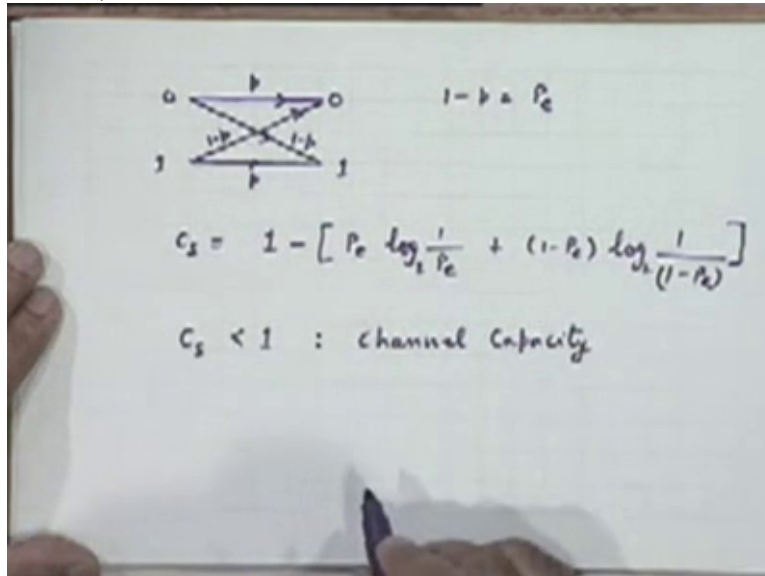 p
0 0 1-p = Pe
1-p 1-p
1 1
p
Cs = 1 - [ Pe log2 1/Pe + (1-Pe) log2 1/(1-Pe) ]
Cs < 1 : Channel Capacity